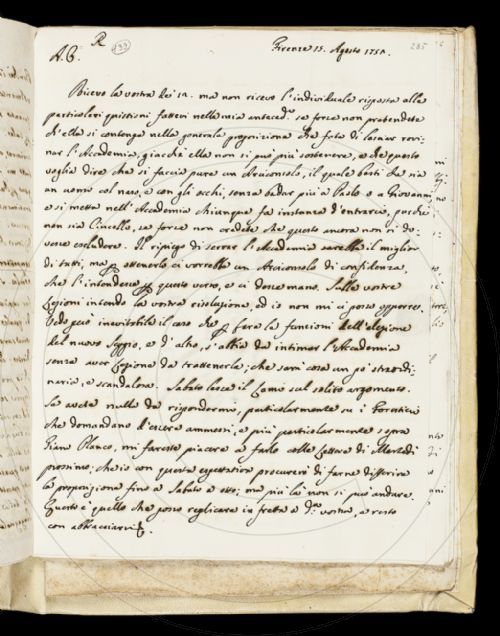 R (133)
A. C. Firenze 15. Agosto 1751. 285
Ricevo la vostra de' 12. ma non ricevo l'individuale risposta alle
particolari quistioni fattevi nella mia anteced.te se forse non pretendete
ch'ella si contenga nella generale proposizione che fate di lasciar rovi-
nar l'Accademia, giacchè ella non si può più sostenere, e che questo
voglia dire che si faccia pure un Arciconsolo, il quale basti che sia
un uomo col naso, e con gli occhi, senza badar più a Paolo o a Giovanni,
e si metta nell'Accademia chiunque fa instanza d'entrarci, purchè
non sia Cinello, se forse non credete che questo ancora non si do-
vesse escludere. Il ripiego di serrar l'Accademia sarebbe il miglior
di tutti, ma p ottenerlo ci vorrebbe un Arciconsolo di confidenza,
che l'intendesse p questo verso, e ci desse mano. Sulle vostre
Lezioni intendo la vostra risoluzione, ed io non mi ci posso opporre.
Vedo però inevitabile il caso che p fare la funzioni dell'elezione
del nuovo Seggio, e d'altro, s'abbia da intimar l'Accademia
senza aver Lezione da trattenerla; che sarà cosa un po' straordi-
naria, e scandalosa. Sabato lesse il Lami sul solito argomento.
Se avete nulla da rispondermi, particolarmente su i Forestieri
che domandano d'essere ammessi, e più particolarmente sopra
Gian Planco, mi fareste piacere a farlo colle Lettere di Martedì
prossimo; ch'io con questa espettativa procurerò di farne differire
la proposizione fino a Sabato a otto; ma più là non si può andare.
Questo è quello che posso replicare in fretta a d.a vostra, e resto
con abbracciarvi